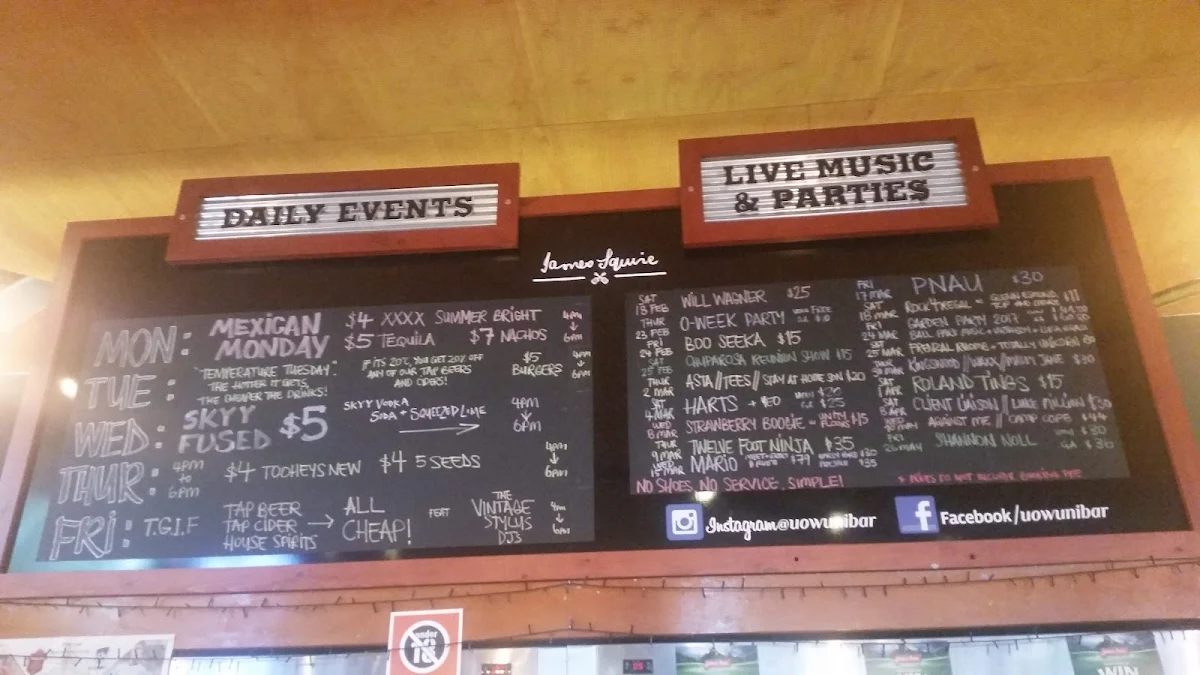 DAILY EVENTS
LIVE MUSIC
& PARTIES
James Squire
MON: MEXICAN MONDAY
$4 XXXX SUMMER BRIGHT
$5 TEQUILA $7 NACHOS
4pm
6pm
TUE: "TEMPERATURE TUESDAY"
THE HOTTER IT GETS,
THE CHEAPER THE DRINKS!
IF ITS 20°C, YOU GET 20% OFF
ANY OF OUR TAP BEERS
AND CIDERS!
$5
BURGERS
4pm
6pm
WED: SKYY FUSED $5
SKYY VODKA
SODA + SQUEEZED LIME
4PM
6PM
THUR: 4PM to 6PM
$4 TOOHEYS NEW $4 5 SEEDS
4pm
6pm
FRI: T.G.I.F
TAP BEER
TAP CIDER
HOUSE SPIRITS
ALL
CHEAP!
FEAT
THE
VINTAGE
STYLUS
DJS
4pm
6pm
SAT 18 FEB WILL WAGNER $25
THUR 23 FEB O-WEEK PARTY
FRI 24 FEB BOO SEEKA $15
SAT 25 FEB CHUPAROSA REUNION SHOW $15
THUR 2 MAR ASTA//TEES//STAY AT HOME SON $20
SAT 4 MAR HARTS
WED 8 MAR STRAWBERRY BOOGIE $15
THUR 9 MAR TWELVE FOOT NINJA $35
WED 15 MAR MARIO $79
NO SHOES, NO SERVICE, SIMPLE!
FRI 17 MAR PNAU $30
SAT 18 MAR $11
FRI 24 MAR GARDEN PARTY 2017
SAT 25 MAR
ROLAND TINGS $15
CLIENT LIAISON//
AGAINST ME //
FRI 26 MAY SHANNON NOLL
Instagram@uowunibar
Facebook/uowunibar
under
18
WIN